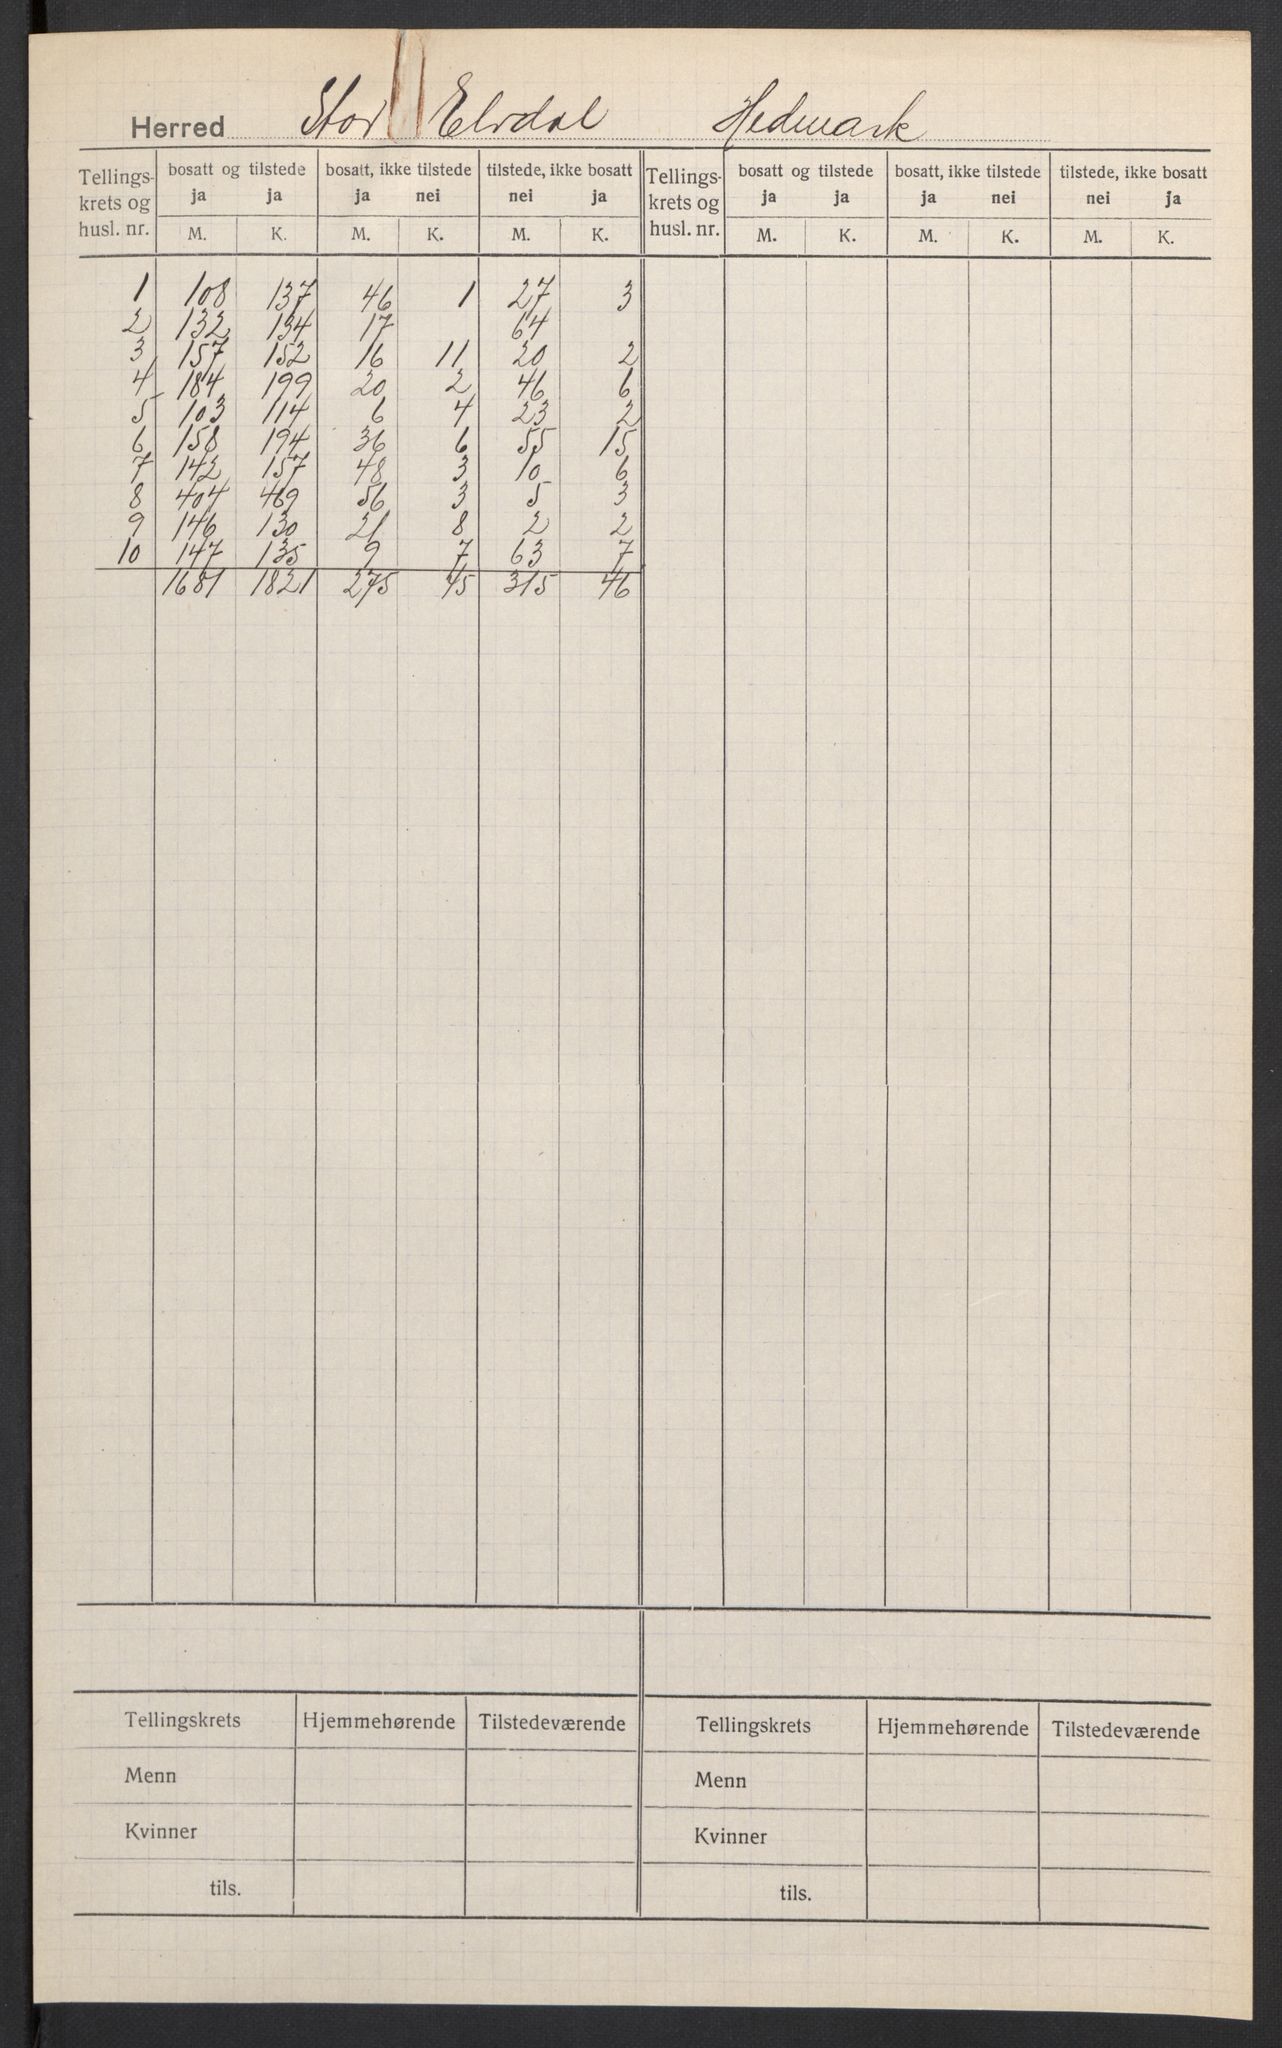 Herred Stor Elvdal Hedmark
Tellings-krets og husl. nr. bosatt og tilstede bosatt, ikke tilstede tilstede, ikke bosatt Tellings-krets og husl. nr. bosatt og tilstede bosatt, ikke tilstede tilstede, ikke bosatt
ja ja ja nei nei ja ja ja ja nei nei ja
M. K. M. K. M. K. M. K. M. K. M. K.
1 108 137 46 1 27 3
2 132 134 17 64
3 157 152 16 11 20 2
4 184 199 20 2 46 6
5 103 114 6 4 23 2
6 158 194 36 6 55 15
7 142 157 48 3 10 6
8 404 469 56 3 5 3
9 146 130 21 8 2 2
10 147 135 9 7 63 7
1681 1821 275 45 315 46
Tellingskrets Hjemmehørende Tilstedeværende Tellingskrets Hjemmehørende Tilstedeværende
Menn Menn
Kvinner Kvinner
tils. tils.